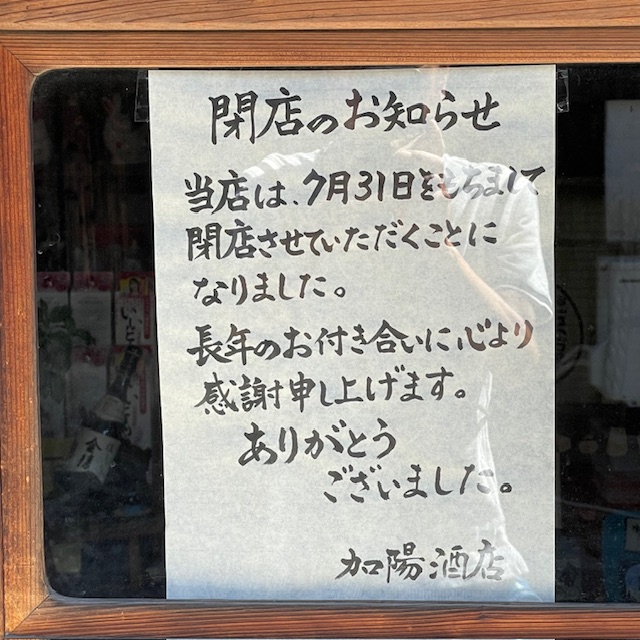 閉店のお知らせ
当店は、7月31日をもちまして
閉店させていただくことに
なりました。
長年のお付き合いに心より
感謝申し上げます。
ありがとう
ございました。
加陽酒店